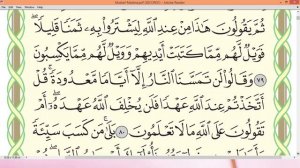 Mushaf Madinah.pdf (SECURED) - Adobe Reader
ثُمَّ يَقُولُونَ هَٰذَا مِنْ عِندِ ٱللَّهِ لِيَشْتَرُوا۟ بِهِۦ ثَمَنًا قَلِيلًا ۖ
فَوَيْلٌ لَّهُم مِّمَّا كَتَبَتْ أَيْدِيهِمْ وَوَيْلٌ لَّهُم مِّمَّا يَكْسِبُونَ
٧٩ وَقَالُوا۟ لَن تَمَسَّنَا ٱلنَّارُ إِلَّآ أَيَّامًا مَّعْدُودَةً ۚ قُلْ
أَتَّخَذْتُمْ عِندَ ٱللَّهِ عَهْدًا فَلَن يُخْلِفَ ٱللَّهُ عَهْدَهُۥٓ ۖ أَمْ
تَقُولُونَ عَلَى ٱللَّهِ مَا لَا تَعْلَمُونَ ٨٠ بَلَىٰ مَن كَسَبَ سَيِّئَةً